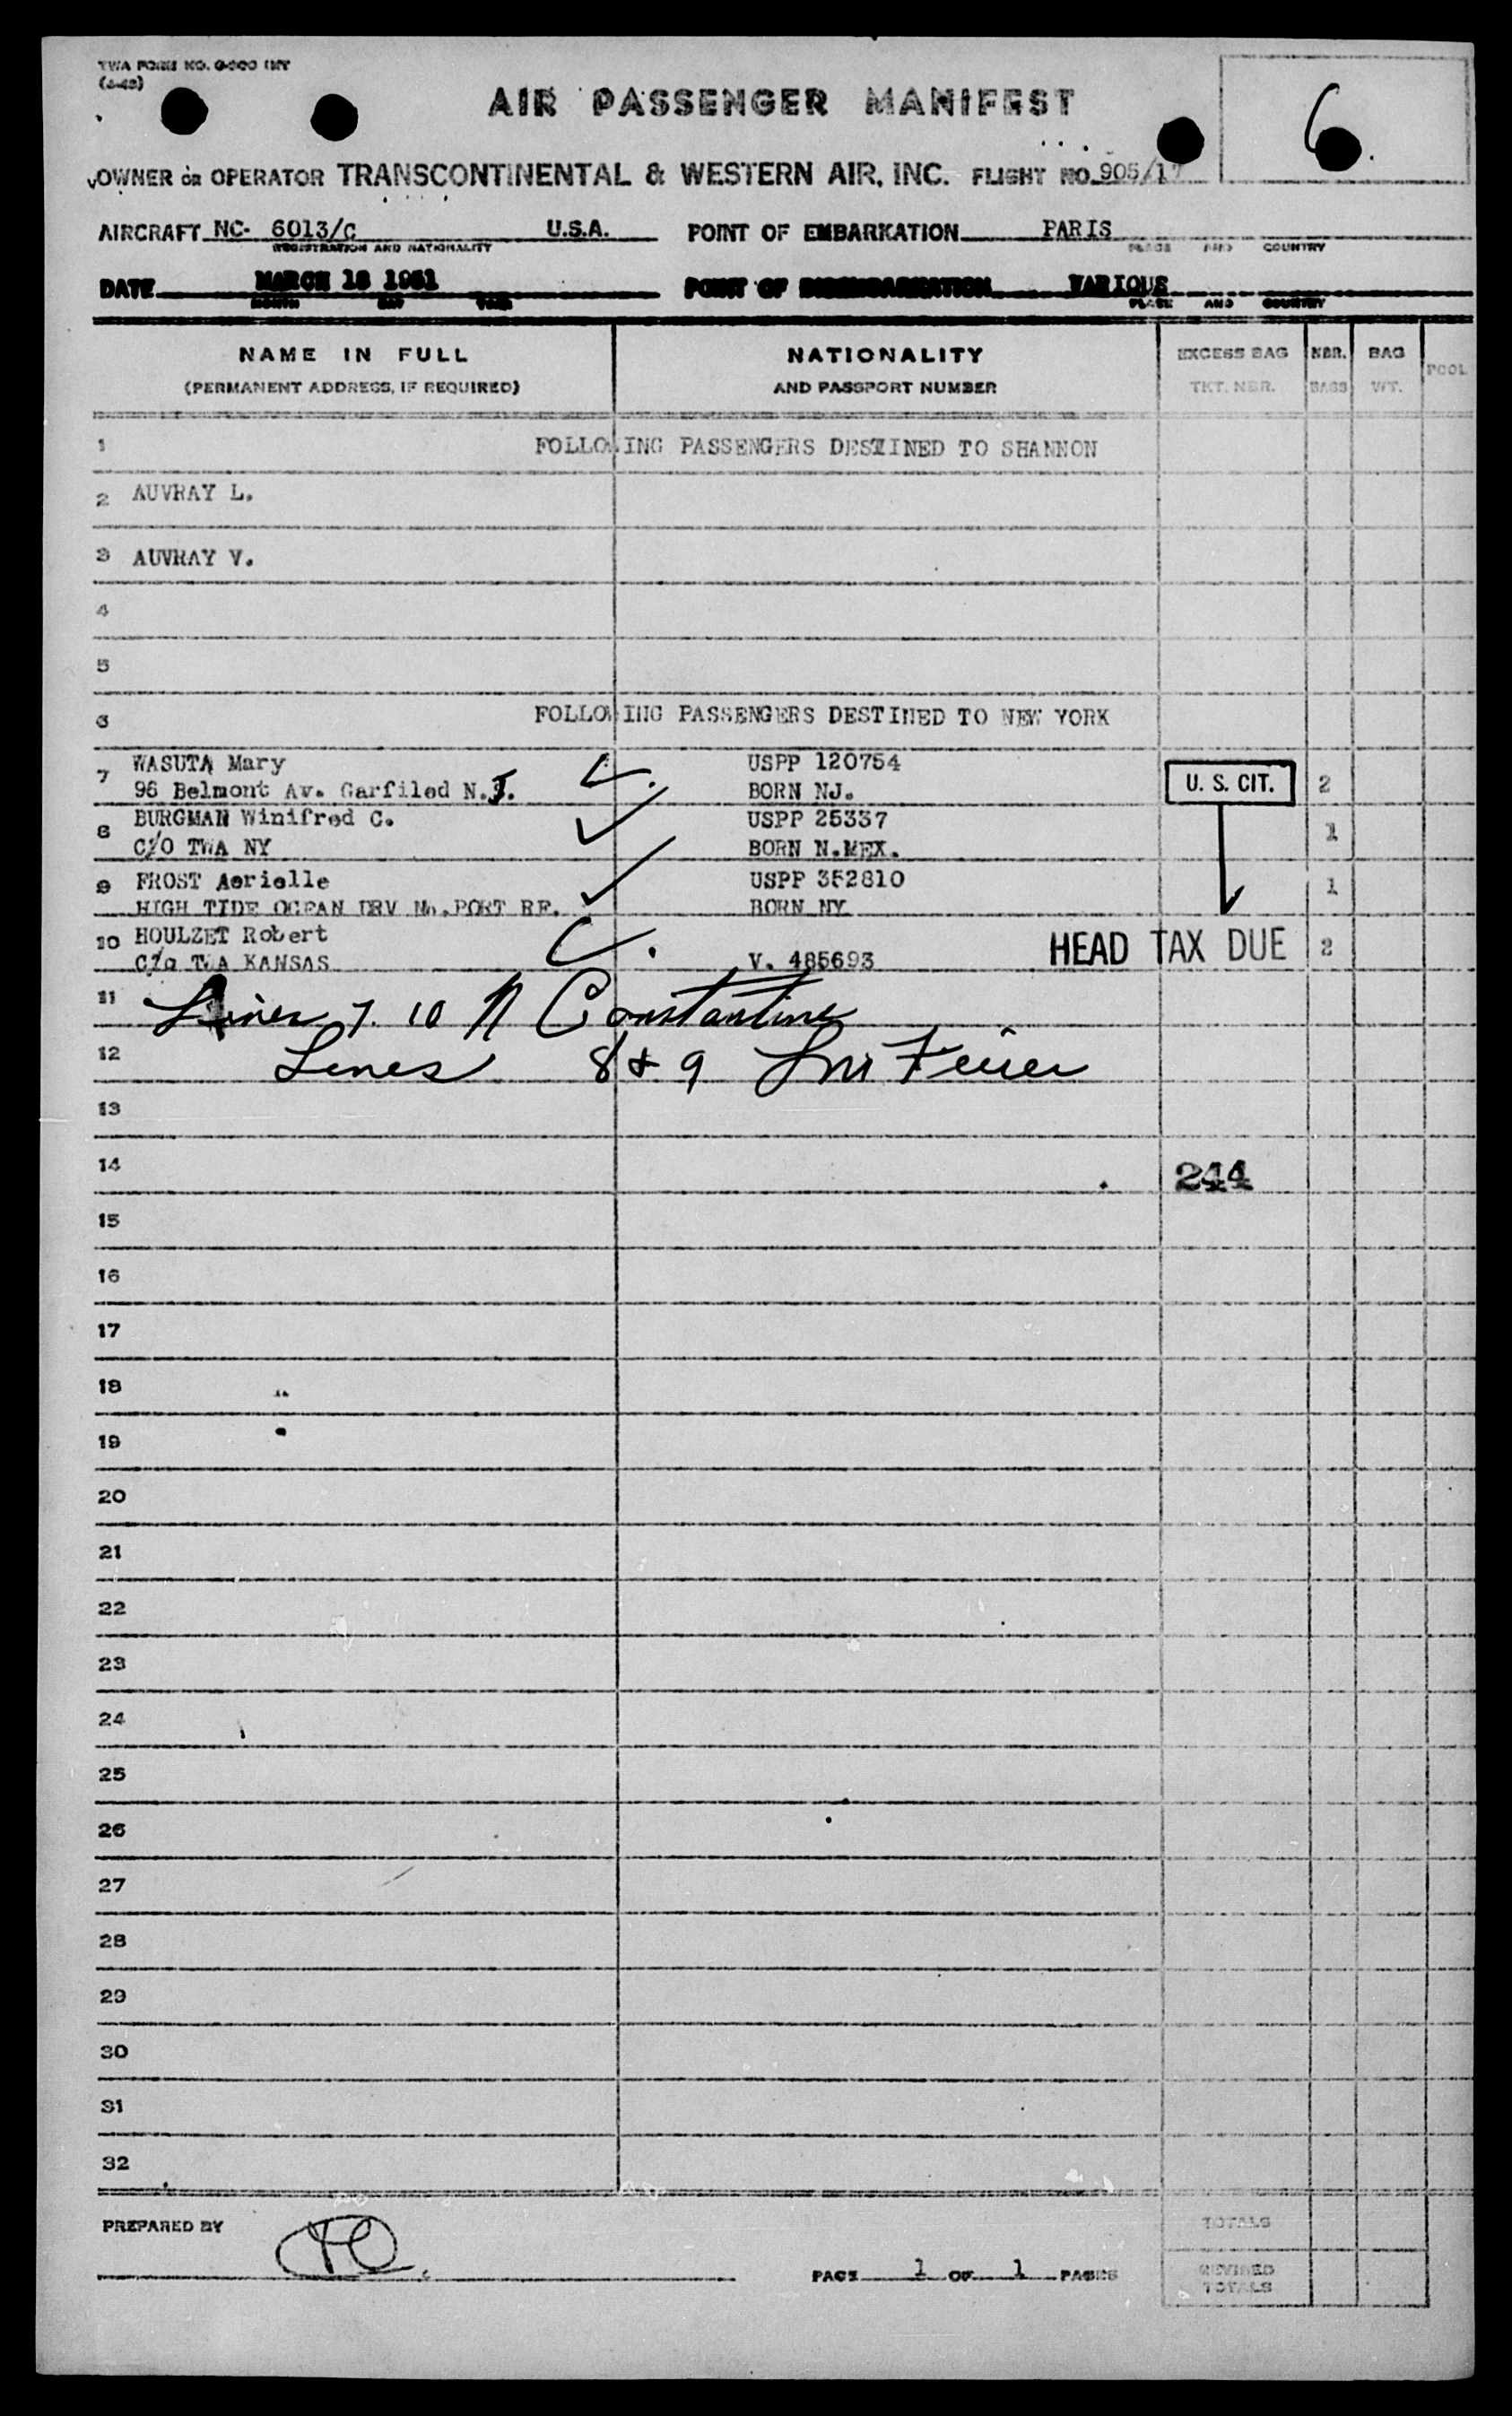 TWA FORM NO.
6
AIR PASSENGER MANIFEST
OWNER OR OPERATOR TRANSCONTINENTAL & WESTERN AIR, INC. FLIGHT NO. 905/17
AIRCRAFT NC- 6013/C U.S.A. POINT OF EMBARKATION PARIS
REGISTRATION AND NATIONALITY PLACE AND COUNTRY
DATE MARCH 18 1951 POINT OF DISEMBARKATION VARIOUS
MONTH DAY YEAR PLACE AND COUNTRY
NAME IN FULL NATIONALITY EXCESS BAG NBR. BAG POOL
(PERMANENT ADDRESS, IF REQUIRED) AND PASSPORT NUMBER TKT. NBR. BAGS WT.
1 FOLLOWING PASSENGERS DESTINED TO SHANNON
2 AUVRAY L.
3 AUVRAY V.
4
5
6 FOLLOWING PASSENGERS DESTINED TO NEW YORK
WASUTA Mary USPP 120754
7 96 Belmont Av. Garfiled N.J. BORN NJ. U. S. CIT. 2
BURGMAN Winifred C. USPP 25337
8 C/O TWA NY BORN N.MEX. 1
9 FROST Aerielle USPP 352810 1
HIGH TIDE OCEAN DRV No.PORT RF. BORN NY
10 HOULZET Robert HEAD TAX DUE 2
C/o TWA KANSAS V. 485693
11 Lines 7. 10 N Constantine
12 Lines 8 & 9 Feuer
13
14 244
15
16
17
18
19
20
21
22
23
24
25
26
27
28
29
30
31
32
PREPARED BY TOTALS
PAGE 1 OF 1 PAGES REVISED
TOTALS